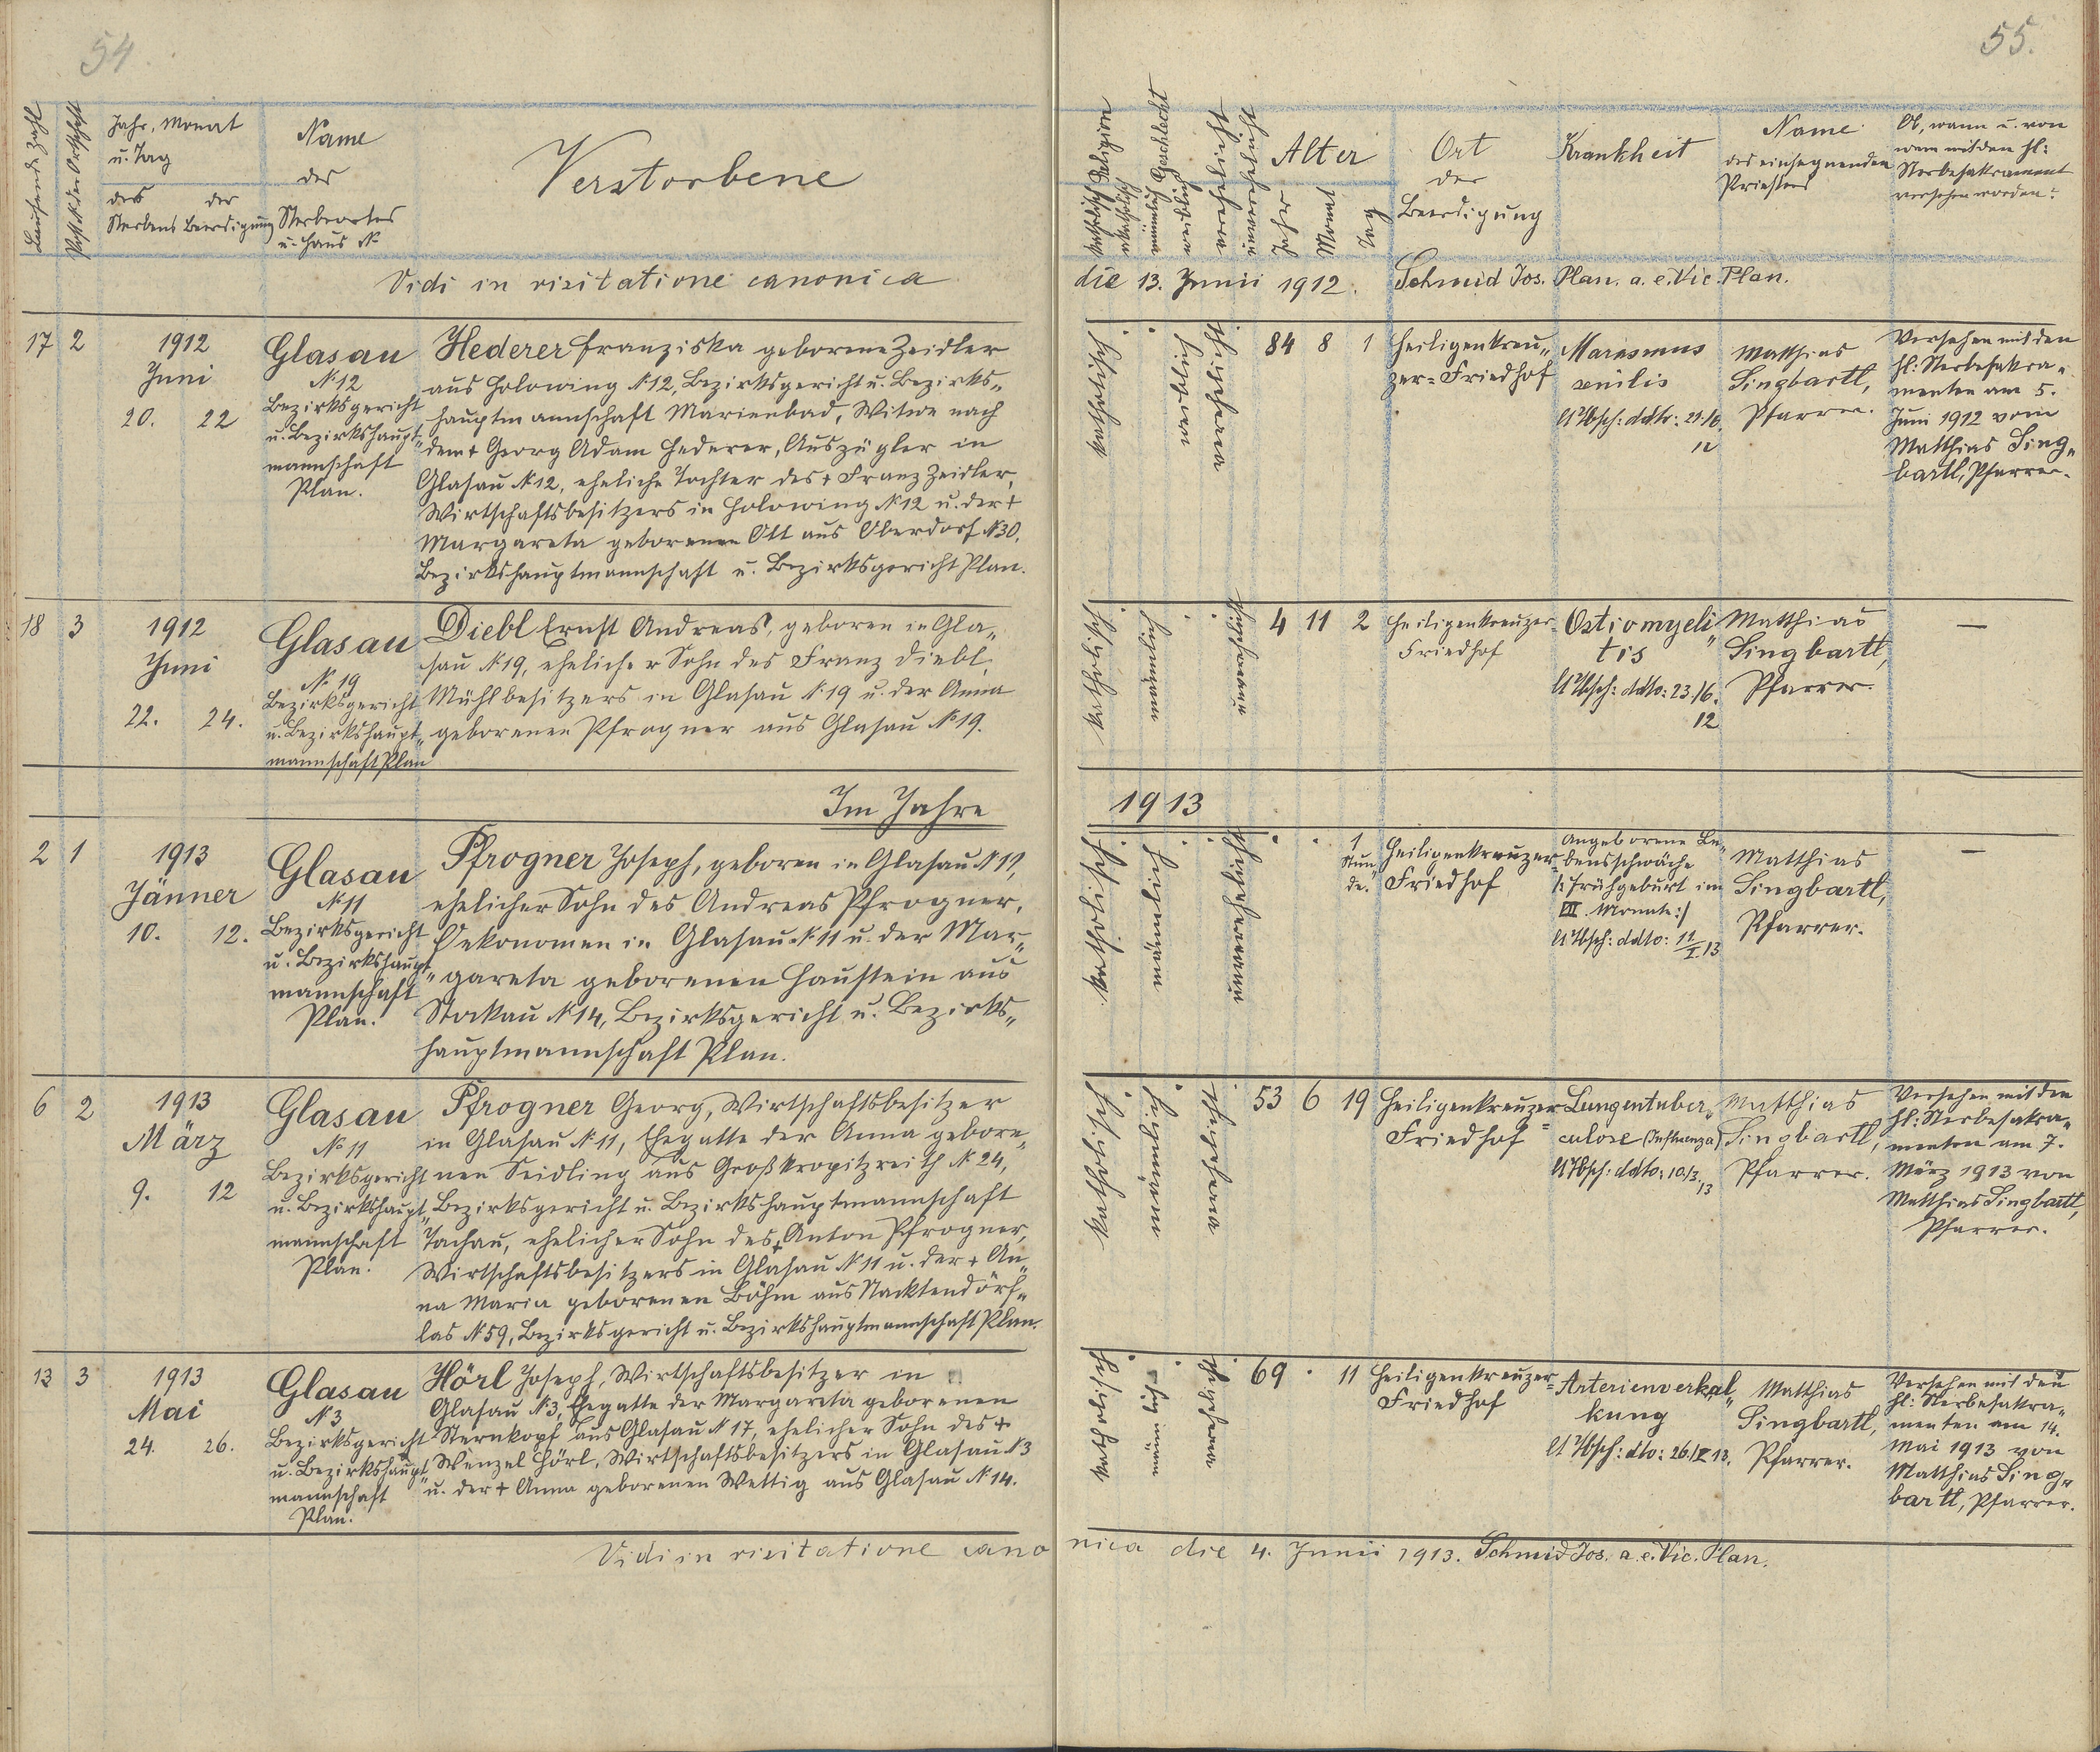 54
55.
Laufende Zahl
Post N der Ortschaft
Jahr, Monat
u. Tag
des der
Sterbens Beerdigung
Name
des
Sterbeortes
u. Haus N
Verstorbene
Religion
katholisch
akatholisch
Geschlecht
männlich
weiblich
verehelicht
unverehelicht
Alter
Jahr
Monat
Tag
Ort
der
Beerdigung
Krankheit
Name
des einsegnenden
Priesters
Ob, wann u. von
wem mit den hl:
Sterbesakrament
versehen worden?
Vidi in visitatione canonica die 13. Junii 1912. Schmid Jos. Plan. a. e. Vic. Plan.
17 2
1912
Juni
20. 22
Glasau
N 12
Bezirksgericht
u. Bezirkshaupt„
mannschaft
Plan.
Hederer Franziska geborene Zeidler
aus Holowing N 12, Bezirksgericht u. Bezirks„
hauptmannschaft Marienbad, Witwe nach
dem + Georg Adam Hederer, Auszügler in
Glasau N 12, eheliche Tochter des + Franz Zeidler,
Wirtschaftsbesitzers in Holowing N 12 u. der +
Margareta geborenen Ott aus Oberdorf N 30,
Bezirkshauptmannschaft u. Bezirksgericht Plan.
katholisch
weiblich
verehelicht
84 8 1
Heiligenkreu„
zer=Friedhof
Marasmus
senilis
ddto: 21./6.
12
Matthias
Singbartl,
Pfarrer.
Versehen mit den
hl: Sterbesakra„
menten am 5.
Juni 1912 vom
Matthias Sing„
bartl, Pfarrer.
18 3
1912
Juni
22. 24.
Glasau
N 19
Bezirksgericht
u. Bezirkshaupt„
mannschaft Plan
Diebl Ernst Andreas, geboren in Gla„
sau N 19, ehelicher Sohn des Franz Diebl,
Mühlbesitzers in Glasau N 19 u. der Anna
geborenen Pfrogner aus Glasau N 19.
katholisch
männlich
unverehelicht
4 11 2
Heiligenkreuzer=
Friedhof
Ostiomyeli„
tis
ddto: 23./6.
12
Matthias
Singbartl,
Pfarrer.
—
Im Jahre 1913
2 1
1913
Jänner
10. 12.
Glasau
N 11
Bezirksgericht
u. Bezirkshaupt„
mannschaft
Plan.
Pfrogner Joseph, geboren in Glasau N 11,
ehelicher Sohn des Andreas Pfrogner,
Oekonomen in Glasau N 11 u. der Mar„
gareta geborenen Haustein aus
Stockau N 14, Bezirksgericht u. Bezirks„
hauptmannschaft Plan.
katholisch
männlich
unverehelicht
1
Stun„
de.
Heiligenkreuzer=
Friedhof
Angeborene Le„
bensschwäche
/: Frühgeburt im
VII. Monate :/
ddto: 11/I 13
Matthias
Singbartl,
Pfarrer.
—
6 2
1913
März
9. 12
Glasau
N 11
Bezirksgericht
u. Bezirkshaupt„
mannschaft
Plan.
Pfrogner Georg, Wirtschaftsbesitzer
in Glasau N 11, Ehegatte der Anna gebore„
nen Seidling aus Großkropitzreith N 24,
Bezirksgericht u. Bezirkshauptmannschaft
Tachau, ehelicher Sohn des + Anton Pfrogner,
Wirtschaftsbesitzers in Glasau N 11 u. der + An„
na Maria geborenen Böhm aus Nacktendörf„
las N 59, Bezirksgericht u. Bezirkshauptmannschaft Plan.
katholisch
männlich
verehelicht
53 6 19
Heiligenkreuzer=
Friedhof
Lungentuber„
culose (Influenza)
ddto: 10/3. 13
Matthias
Singbartl,
Pfarrer.
Versehen mit den
hl: Sterbesakra„
menten am 7.
März 1913 von
Matthias Singbartl,
Pfarrer.
13 3
1913
Mai
24. 26.
Glasau
N 3
Bezirksgericht
u. Bezirkshaupt„
mannschaft
Plan.
Hörl Joseph, Wirtschaftsbesitzer in
Glasau N 3, Ehegatte der Margareta geborenen
Sternkopf aus Glasau N 17, ehelicher Sohn des +
Wenzel Hörl, Wirtschaftsbesitzers in Glasau N 3
u. der + Anna geborenen Wettig aus Glasau N 14.
katholisch
männlich
verehelicht
69 . 11
Heiligenkreuzer=
Friedhof
Arterienverkal„
kung
dto: 26./V 13.
Matthias
Singbartl,
Pfarrer.
Versehen mit den
hl: Sterbesakra„
menten am 14.
Mai 1913 von
Matthias Sing„
bartl, Pfarrer.
Vidi in visitatione canonica die 4. Junii 1913. Schmid Jos. a. e. Vic. Plan.